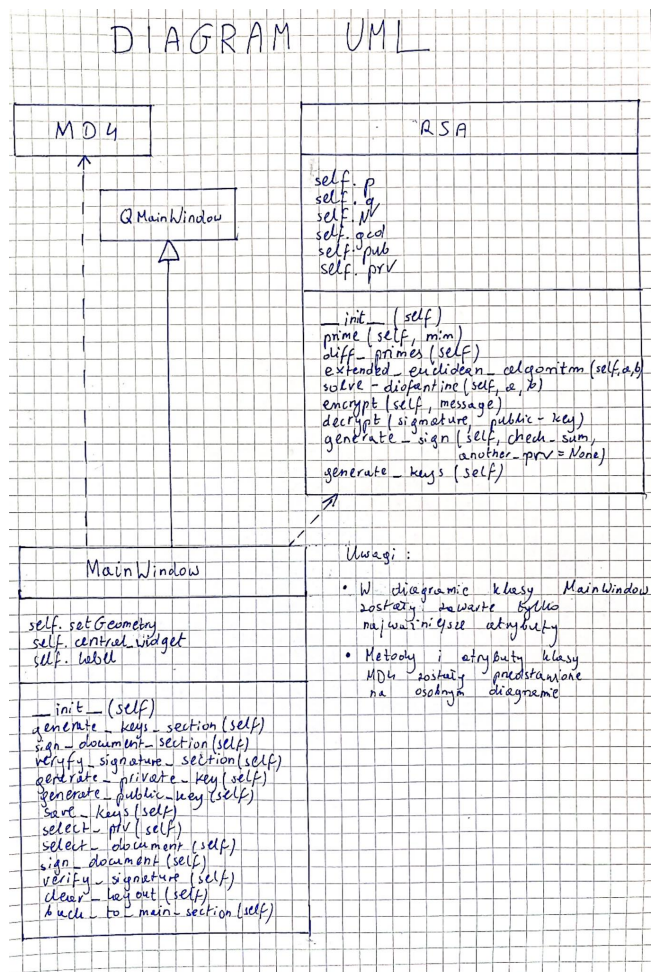 DIAGRAM UML
MD4
QMainWindow
RSA
self.p
self.q
self.N
self.gcd
self.pub
self.prv
__init__(self)
prime(self, min)
diff_primes(self)
extended_euclidean_algoritm(self,a,b)
solve-diofantine(self, a, b)
encrypt(self, message)
decrypt(signature, public-key)
generate_sign(self, check_sum,
another_prv=None)
generate_keys(self)
MainWindow
self.setGeometry
self.central_widget
self.label
__init__(self)
generate_keys_section(self)
sign_document_section(self)
veryfy_signature_section(self)
generate_private_key(self)
generate_public_key(self)
save_keys(self)
select_prv(self)
select_document(self)
sign_document(self)
verify_signature(self)
clear_layout(self)
back_to_main_section(self)
Uwagi:
• W diagramie klasy MainWindow
zostały zawarte tylko
najważniejsze atrybuty
• Metody i atrybuty klasy
MD4 zostały przedstawione
na osobnym diagramie